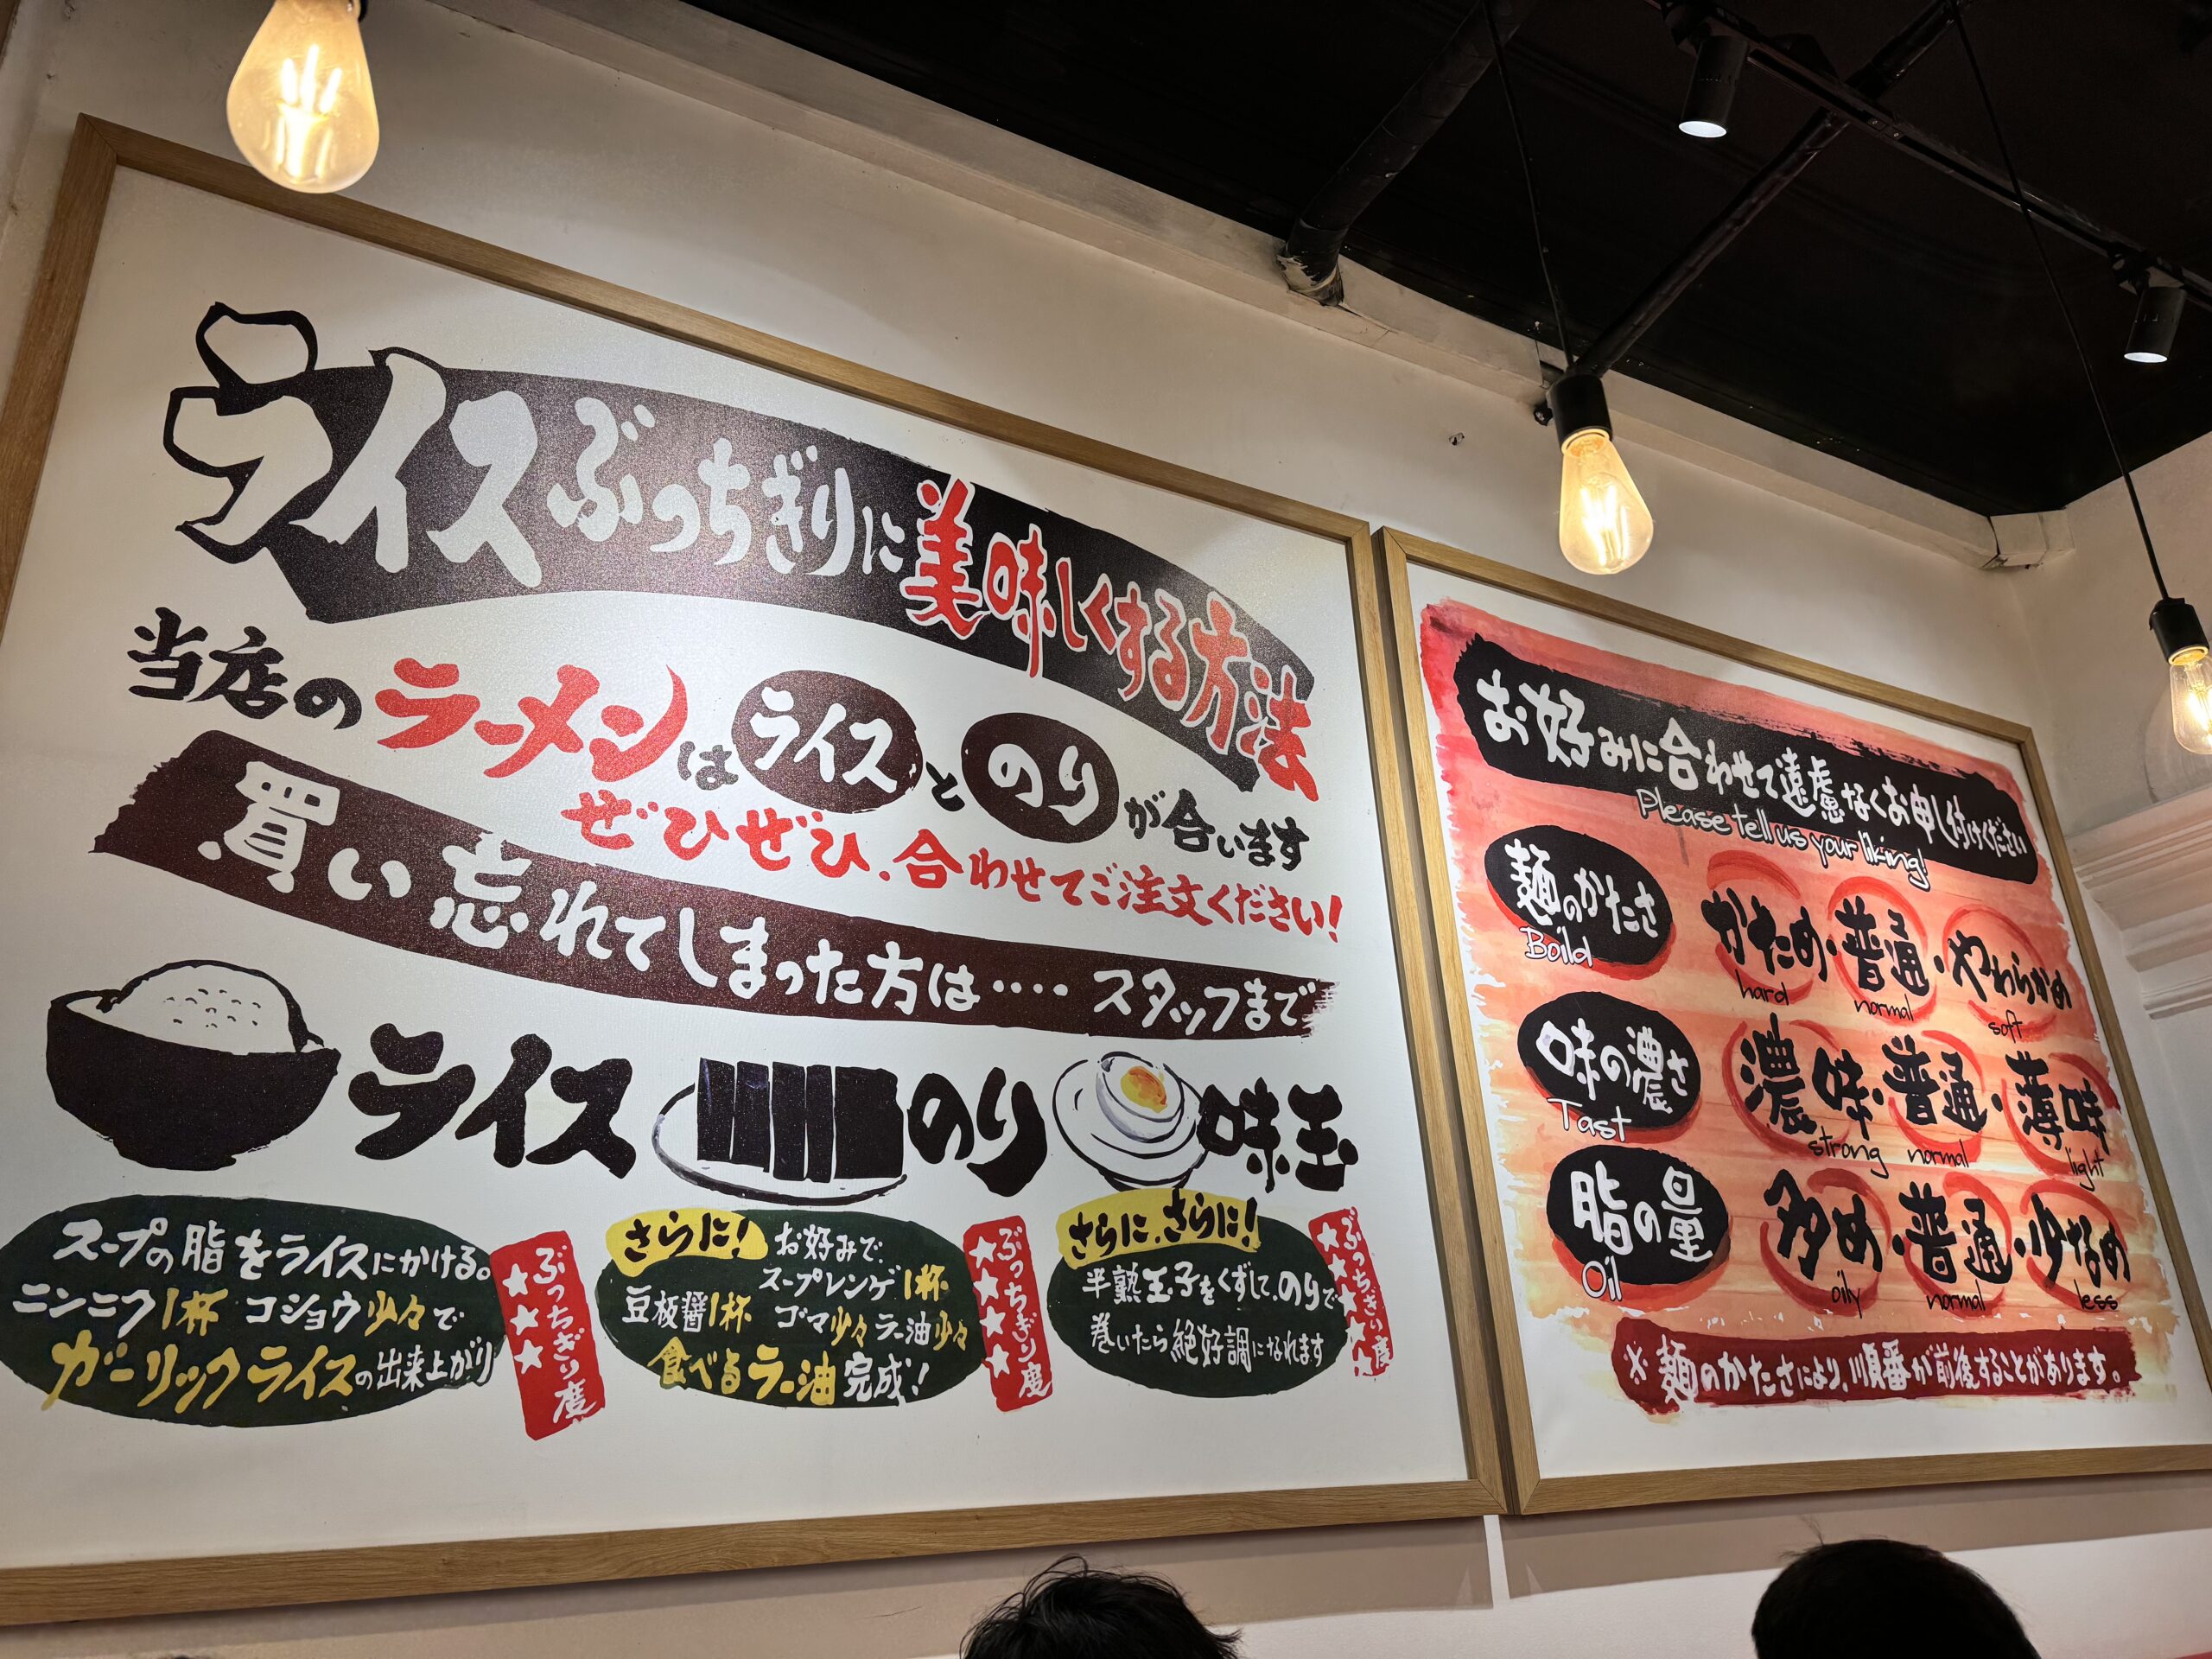 ライスぶっちぎりに美味しくする方法
当店のラーメンはライスとのりが合います
ぜひぜひ、合わせてご注文ください!
買い忘れてしまった方は‥‥スタッフまで
ライス
のり
味玉
スープの脂をライスにかける。
ニンニク1杯 コショウ少々で
ガーリックライスの出来上がり
ぶっちぎり度
★★★
さらに!
お好みで
スープレンゲ1杯
豆板醤1杯 ゴマ少々 ラー油少々
食べるラー油完成!
ぶっちぎり度
★★★★
さらに、さらに!
半熟玉子をくずして、のりで
巻いたら絶好調になれます
ぶっちぎり度
お好みに合わせて遠慮なくお申し付けください
Please tell us your liking!
麺のかたさ
Boild
かため・普通・やわらかめ
hard normal soft
味の濃さ
Tast
濃味・普通・薄味
strong normal light
脂の量
Oil
多め・普通・少なめ
oily normal less
※麺のかたさにより、順番が前後することがあります。